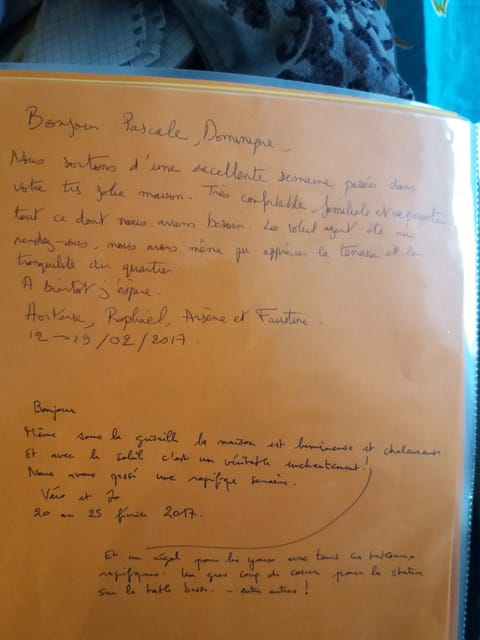 Bonjour Pascale, Dominique,
Nous sortons d'une excellente semaine passée dans
votre très jolie maison. Très confortable, familiale et
tout ce dont nous avions besoin. Le soleil ayant été au
rendez-vous, nous avons même pu apprécier la terrasse et la
tranquilité du quartier.
A bientôt j'espère.
Hortense, Raphaël, Arsène et Faustine.
12 → 19/02/2017.
Bonjour
Même sous la grisaille la maison est lumineuse et chaleureuse.
Et avec le soleil c'est un véritable enchantement !
Nous avons passé une magnifique semaine.
Véro et Jo
20 au 25 février 2017.
Et un régal pour les yeux avec tous ces tableaux
magnifiques. Un gros coup de coeur pour la statue
sur la table basse. - entre autres !